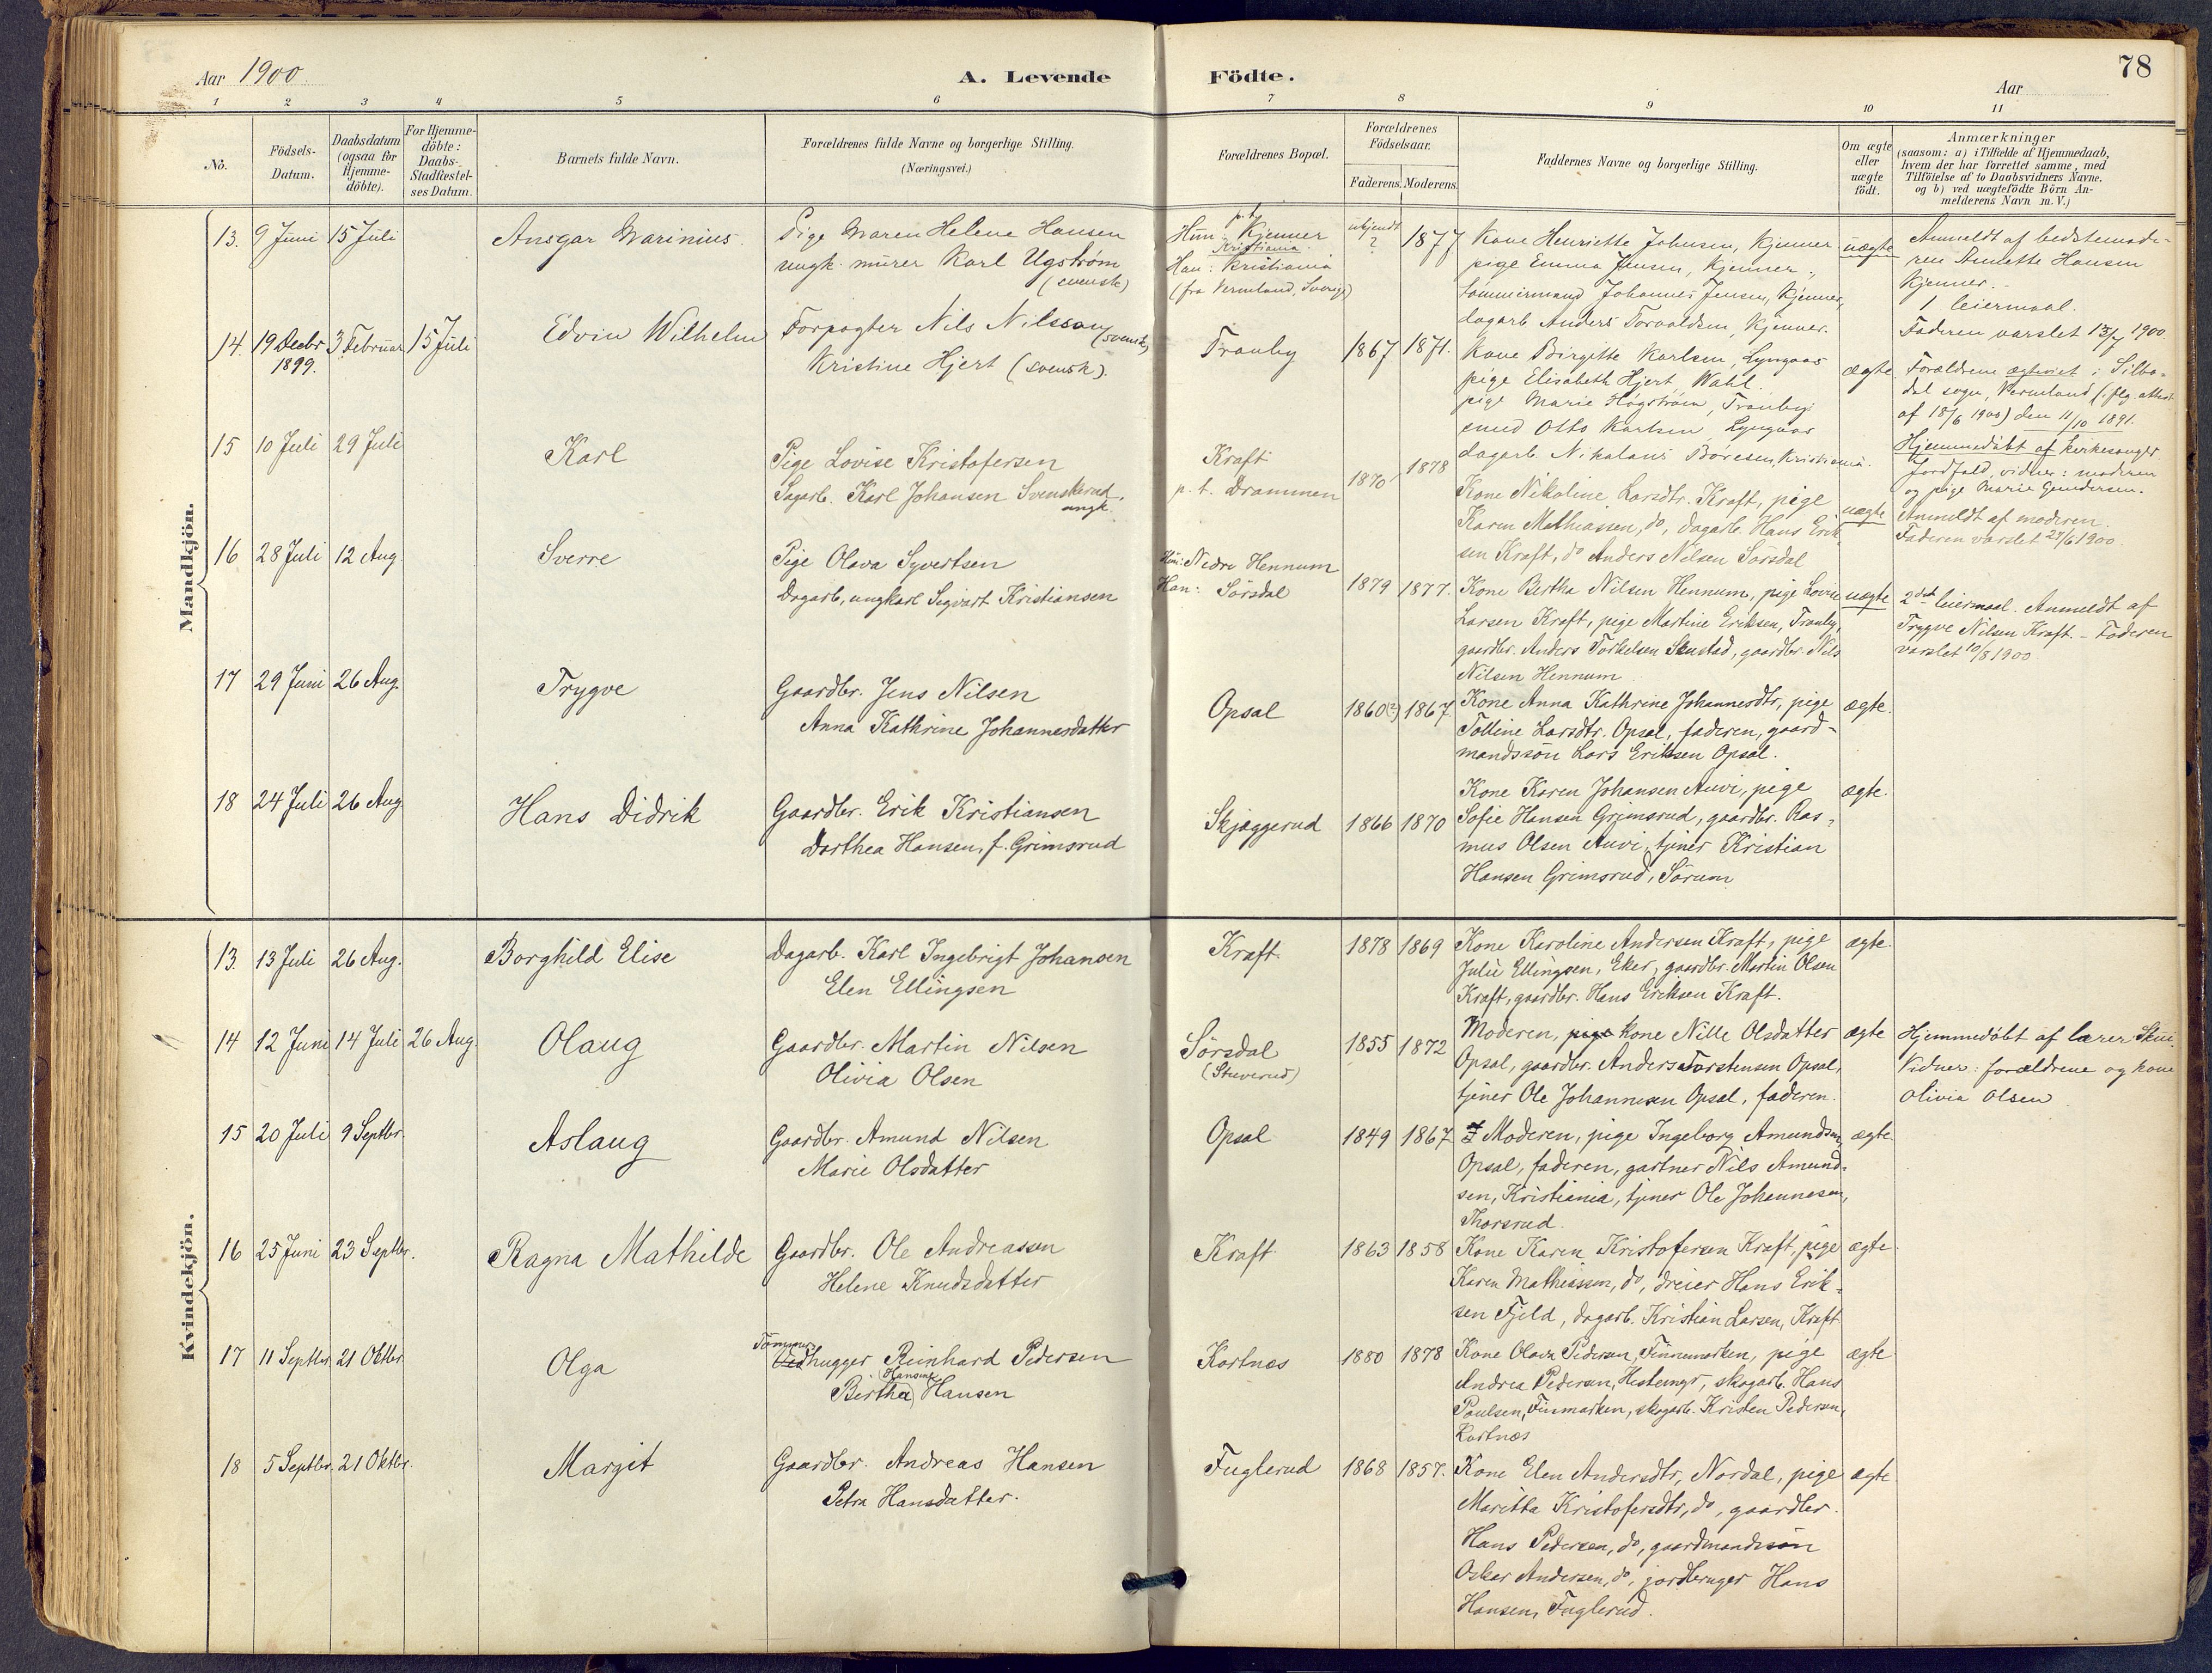 78
Aar 1900
A. Levende Födte.
Aar
1 2 3 4 5 6 7 8 9 10 11
No.
Födsels-
Datum.
Daabsdatum
(ogsaa for
Hjemme-
döbte).
For Hjemme-
döbte:
Daabs-
Stadfæstel-
ses Datum.
Barnets fulde Navn.
Forældrenes fulde Navne og borgerlige Stilling.
(Næringsvei.)
Forældrenes Bopæl.
Forældrenes
Födselsaar.
Faderens. Moderens.
Faddernes Navne og borgerlige Stilling.
Om ægte
eller
uægte
födt.
Anmærkninger
(saasom: a) i Tilfælde af Hjemmedaab,
hvem der har forrettet samme, med
Tilföielse af to Daabsvidners Navne,
og b) ved uægtefödte Börn An-
melderens Navn m. V.)
Mandkjön.
13. 9 Juni 15 Juli
Ansgar Marinius.
Pige Maren Helene Hansen
ungk. murer Karl Ugström
(svensk)
p.t.
Hun: Kjenner
Kristiania
Han: Kristiania
(fra Vermland, Sverige)
ukjendt
?
1877
Kone Henriette Johnsen, Kjenner
pige Emma Jensen, Kjenner,
tömmermand Johannes Jensen, Kjenner,
dagarb. Anders Torvaldsen, Kjenner.
uægte
Anmeldt af bedstemode-
ren Annette Hansen
Kjenner.
1. leiermaal.
Faderen varslet 13/7 1900
14. 19 Decbr 3 Februar 15 Juli
1899.
Edvin Wilhelm
Forpagter Nils Nilsson (svensk)
Kristine Hjert (svensk).
Tranby
1867 1871.
Kone Birgitte Karlsen, Lyngaas
pige Elisabeth Hjert, Wahl.
pige Marie Högström, Tranby
smed Otto Karlsen Lyngaas
dagarb. Nikolaus Böresen, Kristiania.
ægte
Forældrene ægteviet i Silbo-
dal sogn, Vermland (iflg. attest
af 18/6 1900) den 11/10 1891.
Hjemmedöbt af kirkesanger
Jordfald, vidner: moderen
og pige Marie Gundersen.
15 10 Juli 29 Juli
Karl
Pige Lovise Kristofersen
Sagarb. Karl Johansen Svenskerud,
ungk.
Kraft
p. t. Drammen
1870 1878
Kone Nikoline Larsdtr. Kraft, pige
Karen Mathiassen, do, dagarb. Hans Erik-
sen Kraft, do Anders Nilsen Sörsdal
uægte
Anmeldt af moderen.
Faderen varslet 27/6 1900.
16 28 Juli 12 Aug.
Sverre
Pige Olava Syvertsen
Dagarb, ungkarl Sigvart Kristiansen
Hun: Nedre Hennum
Han: Sörsdal
1879 1877.
Kone Bertha Nilsen Hennum, pige Lovise
Larsen Kraft, pige Martine Eriksen, Tranby,
gaardbr. Anders Torkelsen Skustad, gaardbr. Nils
Nilsen Hennum
uægte
2det leiermaal. Anmeldt af
Trygve Nilsen Kraft. - Faderen
varslet 10/8 1900
17 29 Juni 26 Aug.
Trygve
Gaardbr. Jens Nilsen
Anna Kathrine Johannesdatter
Opsal
1860(?) 1867
Kone Anna Kathrine Johannesdtr, pige
Tolline Larsdtr. Opsal, faderen, gaard-
mandssön Lars Eriksen Opsal.
ægte.
18 24 Juli 26 Aug.
Hans Didrik
Gaardbr. Erik Kristiansen
Dorthea Hansen, f. Grimsrud
Skjæggerud
1866 1870
Kone Karen Johansen Auvi, pige
Sofie Hansen Grimsrud, gaardbr. Ras-
mus Olsen Auvi, tjener Kristian
Hansen Grimsrud, Sörum
ægte.
Kvindekjön.
13. 13 Juli 26 Aug.
Borghild Elise
Dagarb. Karl Ingebrigt Johansen
Elen Ellingsen
Kraft.
1878 1869
Kone Karoline Andersen Kraft, pige
Julie Ellingsen, Eker, gaardbr. Martin Olsen
Kraft, gaardbr. Hans Eriksen Kraft.
ægte.
14 12 Juni 14 Juli 26 Aug.
Olaug
Gaardbr. Martin Nilsen
Olivia Olsen
Sörsdal
(Stuverud)
1855 1872
Moderen, pige kone Nille Olsdatter
Opsal, gaardbr. Anders Torstensen Opsal,
tjener Ole Johannesen Opsal, faderen.
ægte
Hjemmedöbt af lærer Skui.
Vidner: forældrene og kone
Olivia Olsen
15 20 Juli 9 Septbr.
Aslaug
Gaardbr. Amund Nilsen
Marie Olsdatter
Opsal
1849 1867
Moderen, pige Ingeborg Amundsen,
Opsal, faderen, gartner Nils Amund-
sen, Kristiania, tjener Ole Johannesen,
Thorsrud.
ægte.
16 25 Juni 23 Septbr.
Ragna Mathilde
Gaardbr. Ole Andreassen
Helene Knudsdatter
Kraft
1863 1858
Kone Karen Kristofersen Kraft, pige
Karen Mathiassen, do, dreier Hans Erik-
sen Fjeld, dagarb. Kristian Larsen, Kraft
ægte
17 11 Septbr. 21 Oktbr.
Olga
Tömmer
Vedhugger Reinhard Pedersen
Hansine
Bertha Hansen
Kortnæs
1880 1878
Kone Olava Pedersen, Finnemarken, pige
Andrea Pedersen, Hestengr, skogarb. Hans
Paulsen, Finmarken, skogarb. Kristen Pedersen,
Kortnæs
ægte
18 5 Septbr. 21 Oktbr.
Margit
Gaardbr. Andreas Hansen
Petra Hansdatter.
Fuglerud
1868 1857.
Kone Elen Andersdtr, Nordal, pige
Maritta Kristofersdtr, do, gaardbr.
Hans Pedersen, do, gaardmandssön
Oskar Andersen, do, jordbruger Hans
Hansen, Fuglerud.
ægte